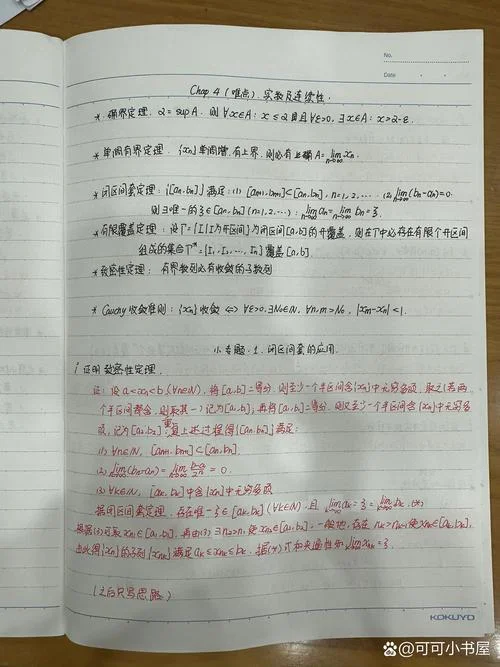 No.
Date
Chap 4 (难点). 实数及连续性.
* 确界定理. α=supA. 则 ∀x∈A: x≤α 且 ∀ε>0, ∃x∈A: x>α-ε.
* 单调有界定理. {xn}单调增, 有上界, 则必有上确A=lim n→∞ xn.
* 闭区间套定理: {[an,bn]} 满足: (1) [an+1,bn+1]⊂[an,bn], n=1,2,… (2) lim n→∞ (bn-an)=0.
则∃唯一的ξ∈[an,bn] (n=1,2,…): lim n→∞ an=lim n→∞ bn=ξ.
* 有限覆盖定理: 设Γ={I|I为开区间}为闭区间[a,b]的开覆盖, 则在Γ中必存在有限个开区间
组成的集合Γ*={I1,I2,…,In}覆盖[a,b].
* 致密性定理: 有界数列必有收敛的子数列
* Cauchy收敛准则: {xn}收敛 ⇔ ∀ε>0, ∃N0∈N, ∀n,m>N0, |xm-xn|<1.
小专题.1. 闭区间套的应用.
i 证明致密性定理.
证: 设a<xn<b (∀n∈N), 将[a,b]二等分, 则至少一个半区间含{xn}中无穷多项, 取之(若两
个半区间都含, 则取其一)记为[a1,b1], 再将[a1,b1]二等分. 则又至少一个半区间含{xn}中无穷多
项, 记为[a2,b2]; 重复上述过程得{[an,bn]}满足:
(1) ∀n∈N, [an+1,bn+1]⊂[an,bn].
(2) lim n→∞ (bn-an)=lim n→∞ b-a/2ⁿ=0.
(3) ∀k∈N, [ak,bk]中含{xn}中无穷多项
据闭区间套定理, 存在唯一ξ∈[ak,bk](∀k∈N), 且 lim k→∞ ak=ξ=lim k→∞ bk. (*)
根据(3)可取xn1∈[a1,b1], 再由(3)∃n2>n1, 使xn2∈[a2,b2], 一般地, 存在nk>nk-1使xnk∈[ak,bk],
由此得{xn}的子列{xnk}满足ak≤xnk≤bk. 据(*)式和夹逼性知 lim k→∞ xnk=ξ.
(之后只写思路)
KOKUYO
@可可小书屋